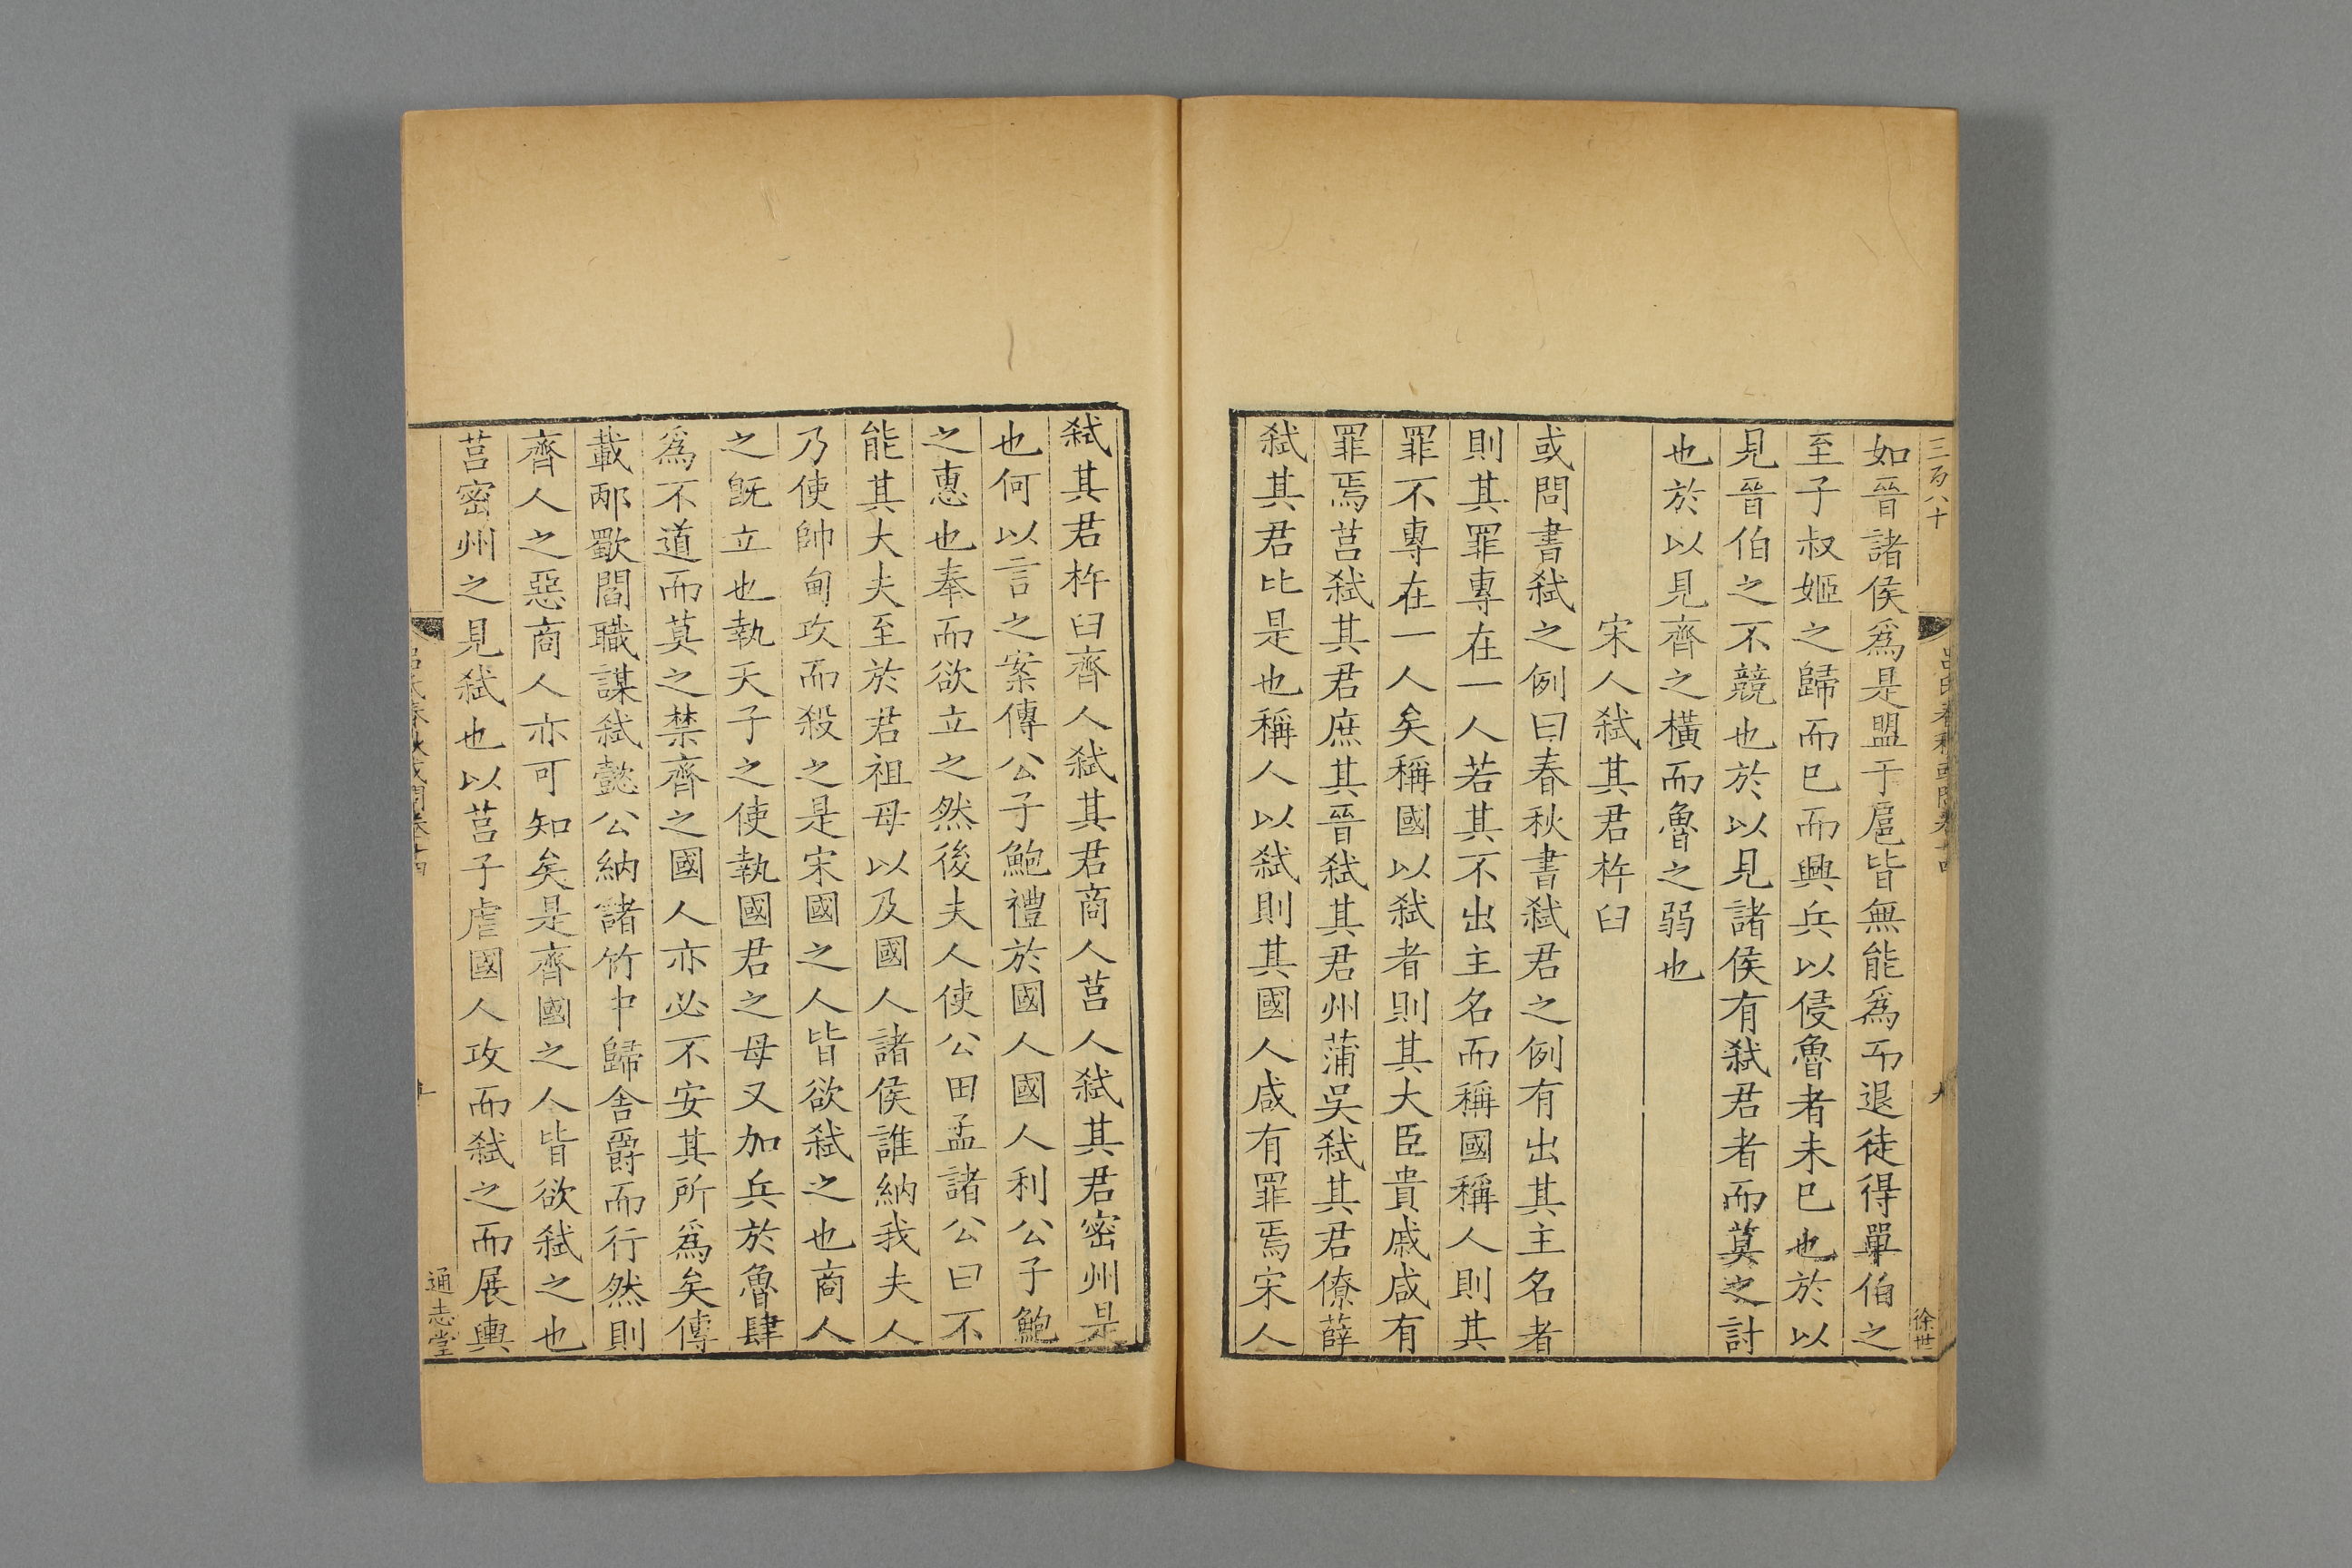 三百八十
如晉諸侯爲是盟于扈皆無能爲而退徒得單伯之
至子叔姬之歸而已而興兵以侵魯者未已也於以
見晉伯之不競也於以見諸侯有弑君者而莫之討
也於以見齊之橫而魯之弱也
宋人弑其君杵臼
或問書弑之例曰春秋書弑君之例有出其主名者
則其罪專在一人若其不出主名而稱國稱人則其
罪不專在一人矣稱國以弑者則其大臣貴戚咸有
罪焉莒弑其君庶其晉弑其君州蒲吳弑其君僚薛
弑其君比是也稱人以弑則其國人咸有罪焉宋人
徐世
弑其君杵臼齊人弑其君商人莒人弑其君密州是
也何以言之案傳公子鮑禮於國人國人利公子鮑
之惠也奉而欲立之然後夫人使公田孟諸公曰不
能其大夫至於君祖母以及國人諸侯誰納我夫人
乃使帥甸攻而殺之是宋國之人皆欲弑之也商人
之旣立也執天子之使執國君之母又加兵於魯肆
爲不道而莫之禁齊之國人亦必不安其所爲矣傳
載邴歜閻職謀弑懿公納諸竹中歸舍爵而行然則
齊人之惡商人亦可知矣是齊國之人皆欲弑之也
莒密州之見弑也以莒子虐國人攻而弑之而展輿
通志堂